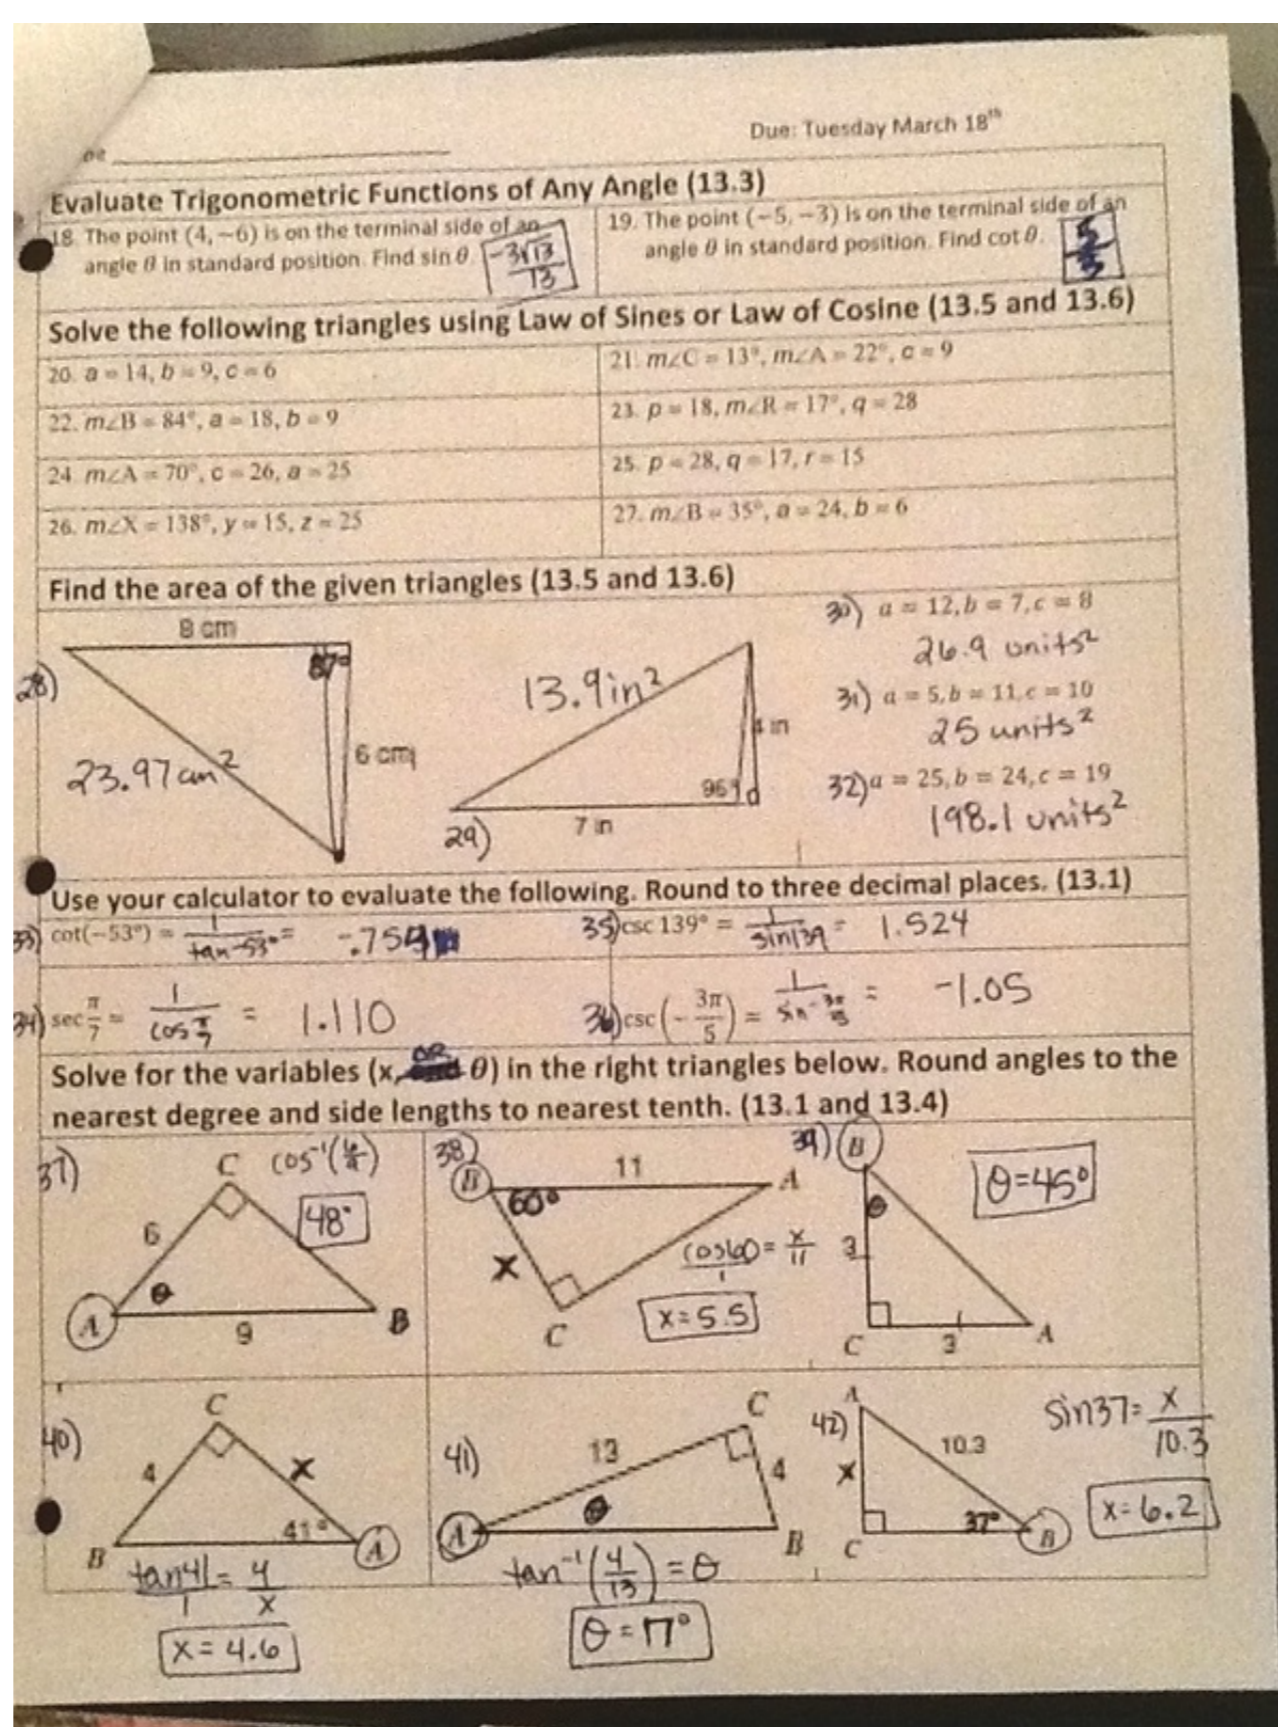 Due: Tuesday March 18th
Evaluate Trigonometric Functions of Any Angle (13.3)
18. The point (4, −6) is on the terminal side of an
angle θ in standard position. Find sin θ.
-3√13/13
19. The point (−5, −3) is on the terminal side of an
angle θ in standard position. Find cot θ.
5/3
Solve the following triangles using Law of Sines or Law of Cosine (13.5 and 13.6)
20. a = 14, b = 9, c = 6
21. m∠C = 13°, m∠A = 22°, c = 9
22. m∠B = 84°, a = 18, b = 9
23. p = 18, m∠R = 17°, q = 28
24. m∠A = 70°, c = 26, a = 25
25. p = 28, q = 17, r = 15
26. m∠X = 138°, y = 15, z = 25
27. m∠B = 35°, a = 24, b = 6
Find the area of the given triangles (13.5 and 13.6)
28)
8 cm
87°
6 cm
23.97cm²
29)
13.9in²
4 in
96°
7 in
30) a = 12, b = 7, c = 8
26.9 units²
31) a = 5, b = 11, c = 10
25 units²
32) a = 25, b = 24, c = 19
198.1 units²
Use your calculator to evaluate the following. Round to three decimal places. (13.1)
33) cot(−53°) = 1/tan-53° = -.754
35) csc 139° = 1/sin139 = 1.524
34) sec π/7 = 1/cos π/7 = 1.110
36) csc(−3π/5) = 1/sin-3π/5 = -1.05
Solve for the variables (x, OR θ) in the right triangles below. Round angles to the
nearest degree and side lengths to nearest tenth. (13.1 and 13.4)
37)
C
cos⁻¹(6/9)
48°
6
θ
A
9
B
38)
B
11
A
60°
x
cos60/1 = x/11
x=5.5
C
39)
B
θ=45°
θ
3
C
3
A
40)
C
4
x
41°
B
A
tan41/1 = 4/x
x=4.6
41)
C
13
4
θ
A
B
tan⁻¹(4/13)=θ
θ=17°
42)
A
sin37= x/10.3
10.3
x
37°
x=6.2
C
B